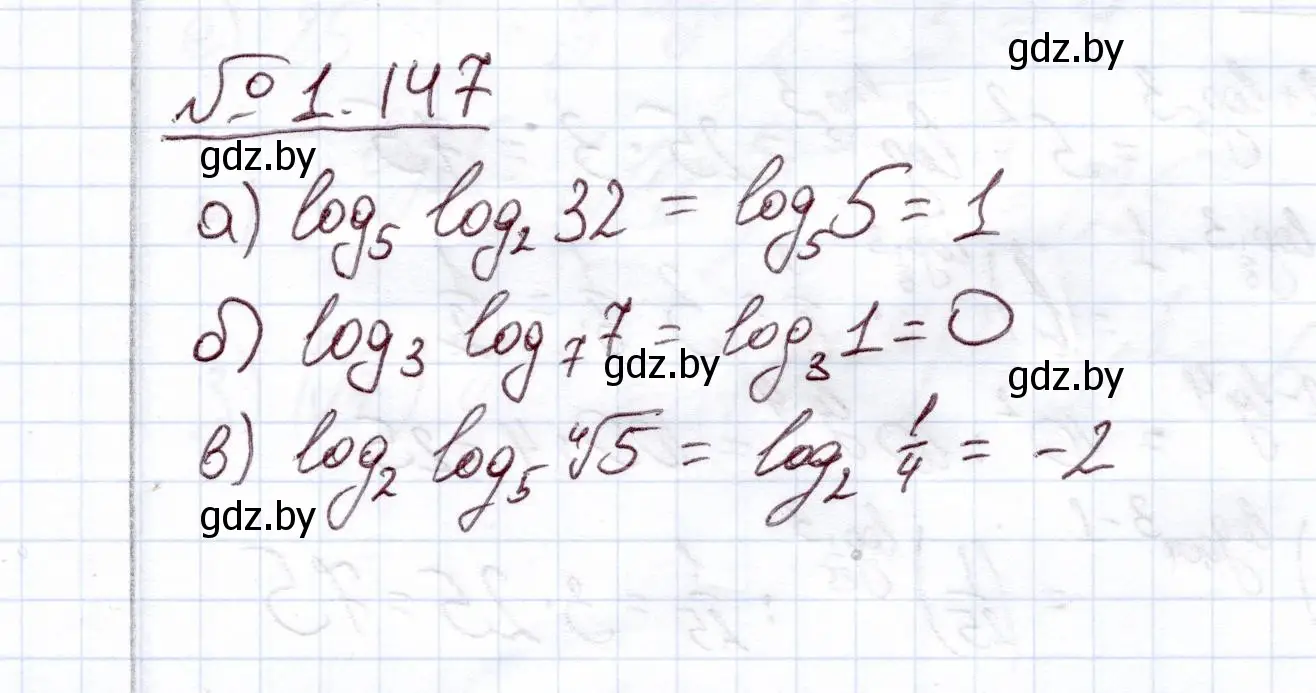 gdz.by
№ 1.147
gdz.by
а) log₅ log₂ 32 = log₅ 5 = 1
б) log₃ log₇ 7 = log₃ 1 = 0
gdz.by
gdz.by
в) log₂ log₅ ⁴√5 = log₂ 1/4 = -2
gdz.by